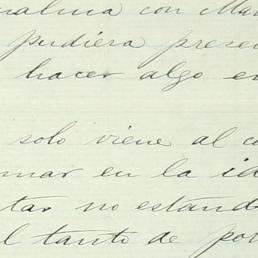 con
pudiera prese
hacer algo e
solo viene al c
mar en la id
tar no estand
l tanto de por